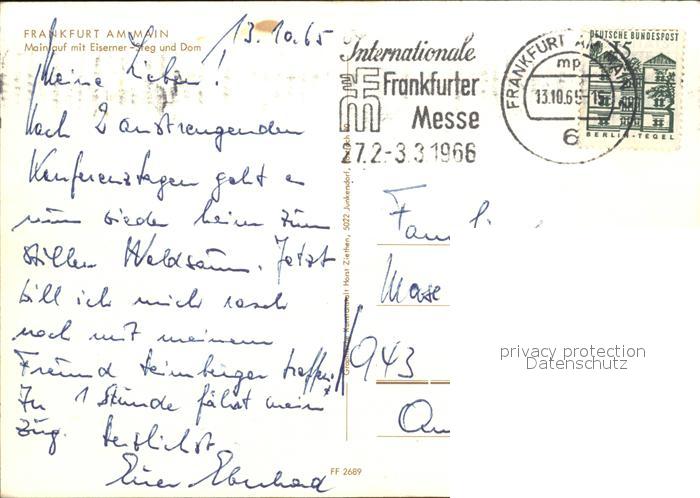 FRANKFURT AM MAIN
Mainlauf mit Eiserner Steg und Dom
13.10.65
Meine Lieben!
Nach 2 anstrengenden
Konferenztagen geht es
nun wieder heim zum
stillen Waldsaum. Jetzt
will ich mich rasch
noch mit meinem
Freund treffen.
In 1 Stunde fährt mein
Zug. Herzlichst
Euer Eberhard
Internationale
Frankfurter
Messe
27.2.-3.3.1966
FRANKFURT AM MAIN
mp
13.10.65-15
6
DEUTSCHE BUNDESPOST
15
BERLIN-TEGEL
Horst Ziethen, 5022 Junkersdorf
Fam
Mose
943
FF 2689
privacy protection
Datenschutz